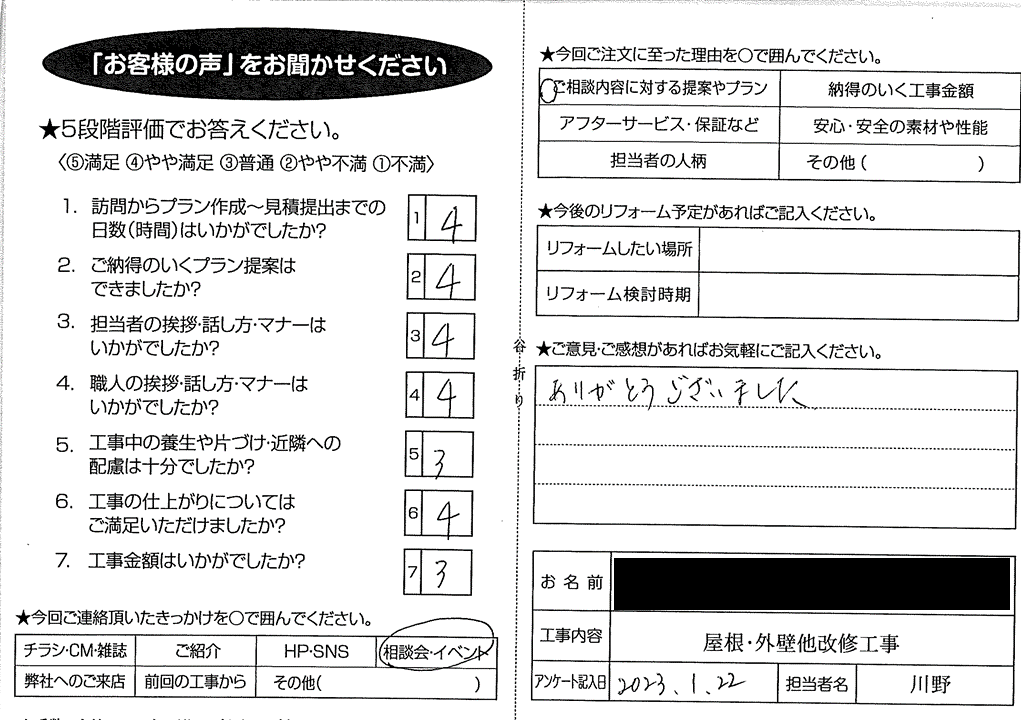 「お客様の声」をお聞かせください
★5段階評価でお答えください。
〈⑤満足 ④やや満足 ③普通 ②やや不満 ①不満〉
1. 訪問からプラン作成～見積提出までの
日数(時間)はいかがでしたか?
1 4
2. ご納得のいくプラン提案は
できましたか?
2 4
3. 担当者の挨拶・話し方・マナーは
いかがでしたか?
3 4
4. 職人の挨拶・話し方・マナーは
いかがでしたか?
4 4
5. 工事中の養生や片づけ・近隣への
配慮は十分でしたか?
5 3
6. 工事の仕上がりについては
ご満足いただけましたか?
6 4
7. 工事金額はいかがでしたか?
7 3
★今回ご連絡頂いたきっかけを○で囲んでください。
チラシ・CM・雑誌 ご紹介 HP・SNS 相談会・イベント
弊社へのご来店 前回の工事から その他( )
谷折り
★今回ご注文に至った理由を○で囲んでください。
ご相談内容に対する提案やプラン 納得のいく工事金額
アフターサービス・保証など 安心・安全の素材や性能
担当者の人柄 その他( )
★今後のリフォーム予定があればご記入ください。
リフォームしたい場所
リフォーム検討時期
★ご意見・ご感想があればお気軽にご記入ください。
ありがとうございました
お名前
工事内容 屋根・外壁他改修工事
アンケート記入日 2023.1.22 担当者名 川野